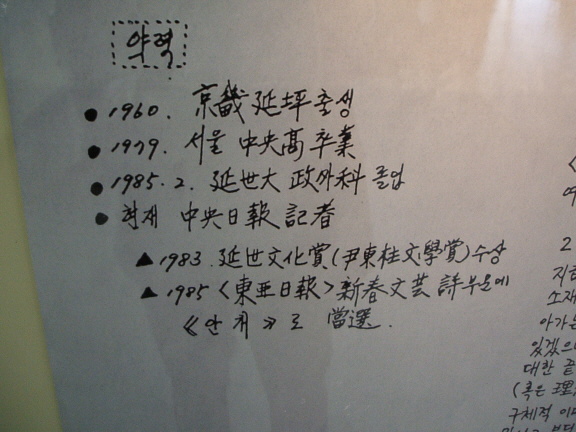 약력
● 1960. 京畿 延坪 출생
● 1979. 서울 中央高 卒業
● 1985. 2. 延世大 政外科 졸업
● 현재 中央日報 記者
▲ 1983. 延世文化賞(尹東柱文學賞) 수상
▲ 1985 <東亜日報> 新春文芸 詩부문에
《안개》로 當選.
2
지
소재
아가는
있겠으
대한 끝
(혹은 理
구체적 이